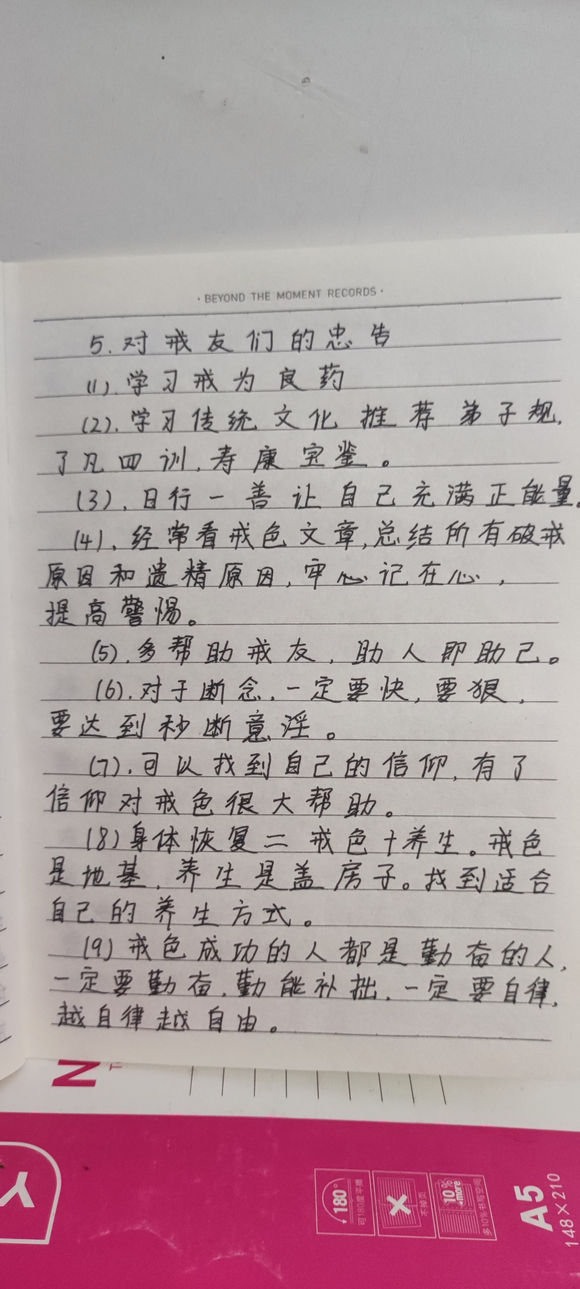 · BEYOND THE MOMENT RECORDS ·
5.对戒友们的忠告
(1).学习戒为良药
(2).学习传统文化推荐弟子规,
了凡四训,寿康宝鉴。
(3).日行一善让自己充满正能量。
(4).经常看戒色文章,总结所有破戒
原因和遗精原因,牢心记在心,
提高警惕。
(5).多帮助戒友,助人即助己。
(6).对于断念,一定要快,要狠,
要达到秒断意淫。
(7).可以找到自己的信仰,有了
信仰对戒色很大帮助。
(8)身体恢复=戒色+养生。戒色
是地基,养生是盖房子。找到适合
自己的养生方式。
(9)戒色成功的人都是勤奋的人,
一定要勤奋,勤能补拙,一定要自律,
越自律越自由。
180°
可180度平摊
不掉页
10%
more
A5
148×210